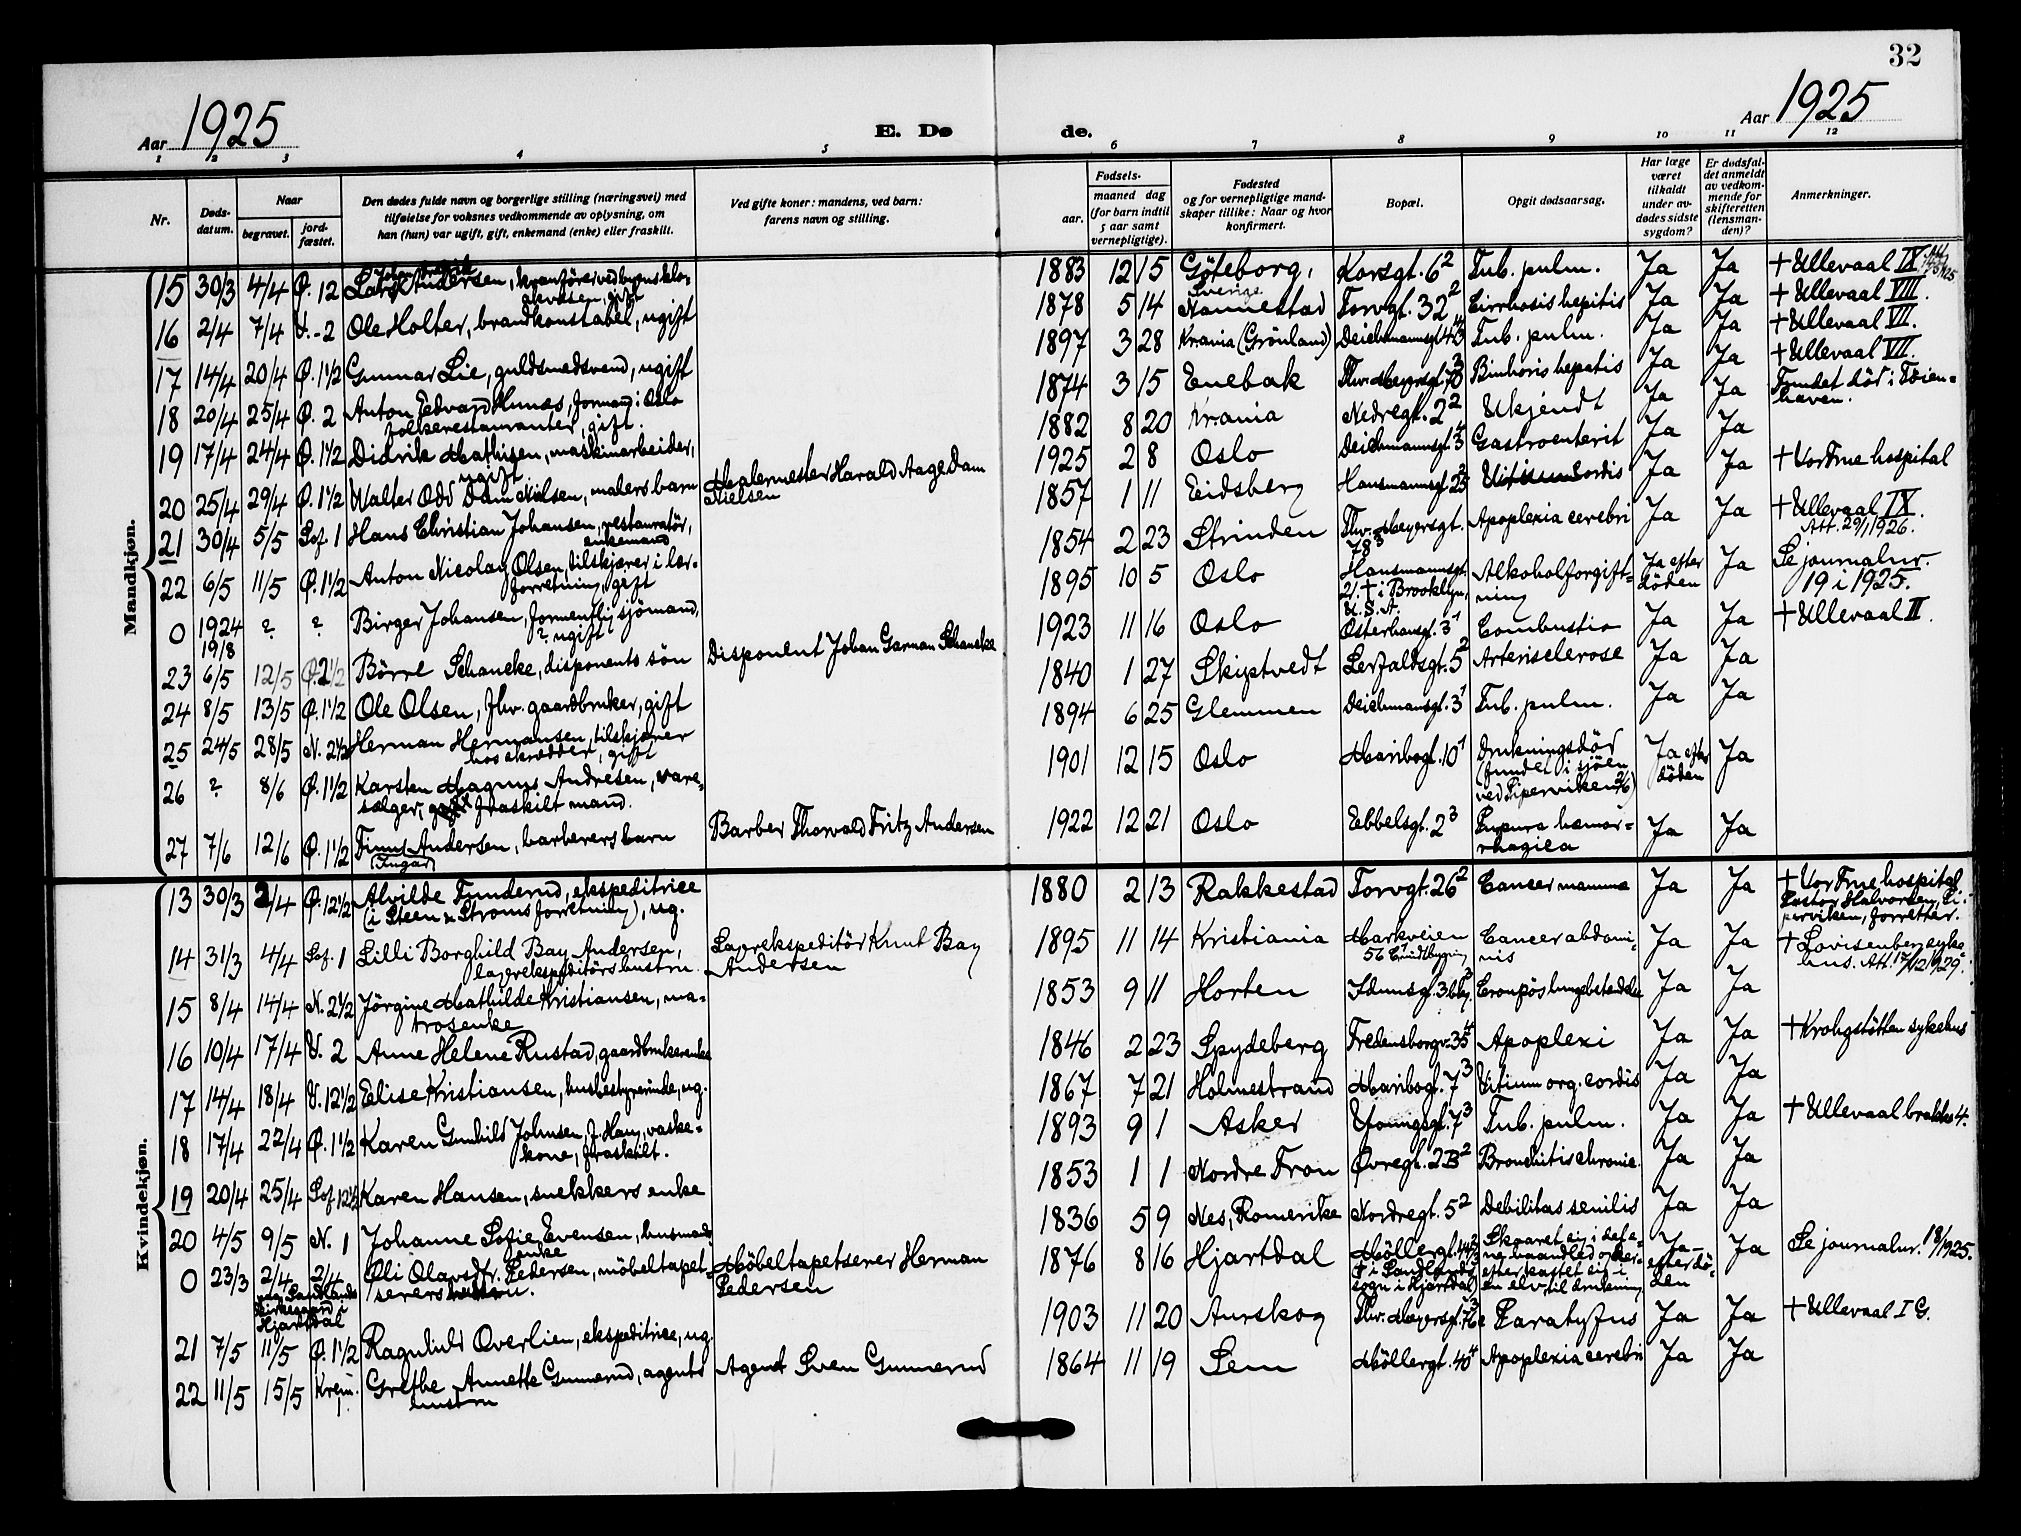 32
Aar 1925
E. Dø de.
Aar 1925
1 2 3 4 5 6 7 8 9 10 11 12
Nr.
Døds-
datum.
Naar
begravet.
jord-
fæstet.
Den dødes fulde navn og borgerlige stilling (næringsvei) med
tilføielse for voksnes vedkommende av oplysning, om
han (hun) var ugift, gift, enkemand (enke) eller fraskilt.
Ved gifte koner: mandens, ved barn:
farens navn og stilling.
Fødsels-
aar.
maaned dag
(for barn indtil
5 aar samt
vernepligtige).
Fødested
og for vernepligtige mand-
skaper tillike: Naar og hvor
konfirmert.
Bopæl.
Opgit dødsaarsag.
Har læge
været
tilkaldt
under av-
dødes sidste
sygdom?
Er dødsfal-
det anmeldt
av vedkom-
mende for
skifteretten
(lensman-
den)?
Anmerkninger.
Mandkjøn.
15 30/3 4/4 Ø. 12 Lars Andersen, kranförer ved byens klo- 1883 12 15 Göteborg, Korsgt. 6² Tub. pulm. Ja Ja + Ullevaal IX.
akvæsen, gift Sverige
16 2/4 7/4 V. - 2 Ole Holter, brandkonstabel, ugift 1878 5 14 Nannestad Torvgt. 32² Cirrhosis hepitis Ja Ja + Ullevaal VIII.
17 14/4 20/4 Ø. 1½ Gunnar Lie, guldsmedsvend, ugift 1897 3 28 Kr.ania (Grönland) Deichmannsgt. Tub. pulm. Ja Ja + Ullevaal VII.
18 20/4 25/4 Ø. 2 Anton Edvard Hunæs, formand i Oslo 1874 3 15 Enebak Thv. Meyersgt. hepatis Ja Ja + Ullevaal VII.
folkerestauranter, gift.
19 17/4 24/4 Ø. 1½ Didrik Mathisen, maskinarbeider, 1882 8 20 Kr.ania Nedregt. 2² Ukjendt Ja Ja Fundet död i Töien-
ugift haven.
20 25/4 29/4 Ø. 1½ Walter Odd Dam Nielsen, malers barn Malermester Harald Aage Dam 1925 2 8 Oslo Deichmannsgt. Gastroenterit Ja Ja
Nielsen
21 30/4 5/5 Sof. 1 Hans Christian Johansen, restauratör, 1857 1 11 Eidsberg Hausmannsgt. Vitium cordis Ja Ja + Vor Frue hospital
enkemand
22 6/5 11/5 Ø. 1½ Anton Nicolay Olsen, tilskjærer i lær- 1854 2 23 Strinden Thv. Meyersgt. Apoplexia cerebri Ja Ja + Ullevaal IX.
forretning, gift 78³ Att. 29/1 1926.
0 1924 ? ? Birger Johansen, formentlig sjömand, 1895 10 5 Oslo Hausmannsgt. Alkoholforgift- Ja efter Ja Se journalnr.
19/8 ? ugift 21. + i Brooklyn, ning döden 19 i 1925.
U. S. A.
23 6/5 12/5 Ø. 2½ Börre Schancke, disponents sön Disponent Johan Garman Schancke 1923 11 16 Oslo Osterhausgt. 3¹ Combustio Ja Ja + Ullevaal II.
24 8/5 13/5 Ø. 1½ Ole Olsen, fhv. gaardbruker, gift 1840 1 27 Skiptvedt Lerfaldsgt. 5² Arterisclerose Ja Ja
25 24/5 28/5 N. 2½ Herman Hermansen, tilskjærer 1894 6 25 Glemmen Deichmansgt. 3¹ Tub. pulm. Ja Ja
hos skrædder, gift
26 ? 8/6 Ø. 1½ Karsten Magnus Andresen, vare- 1901 12 15 Oslo Maribogt. 10¹ Drukningsdöd Ja efter Ja
sælger, fraskilt mand. (fundet i sjöen döden
ved Piperviken 2/6)
27 7/6 12/6 Ø. 1½ Finn Andersen, barberers barn Barber Thorvald Fritz Andersen 1922 12 21 Oslo Ebbelsgt. 2³ Purpura hæmor- Ja Ja
(Ingar) rhagica
Kvindekjøn.
13 30/3 2/4 Ø. 12½ Alvilde Funderud, ekspeditrice 1880 2 13 Rakkestad Torvgt. 26² Cancer mamma Ja Ja + Vor Frue hospital.
(i Steen & Ströms forretning), ug. Pastor Halvorsen, Pi-
perviken, forretter.
14 31/3 4/4 Sof. 1 Lilli Borghild Bay Andersen, Lagerekspeditör Knut Bay 1895 11 14 Kristiania Markveien Cancer abdomi- Ja Ja + Lovisenberg syke
lagerekspeditörs hustru Andersen 56 nis hus. Att. 17/12 1929.
15 8/4 14/4 N. 2½ Jörgine Mathilde Kristiansen, ma- 1853 9 11 Horten Idunsgt. Croupös lungebetændelse Ja Ja
trosenke
16 10/4 17/4 V. 2 Anne Helene Rustad, gaardbrukerenke 1846 2 23 Spydeberg Fredensborgv. 35⁴ Apoplexi Ja Ja + Krohgstötten sykehus
17 14/4 18/4 V. 12½ Elise Kristiansen, husbestyrerinde, ug. 1867 7 21 Holmestrand Maribogt. 7³ Vitium org. cordis Ja Ja
18 17/4 22/4 Ø. 1½ Karen Gunhild Johnsen, f. Haug, vaske- 1893 9 1 Asker Youngsgt. 7³ Tub. pulm. Ja Ja + Ullevaal brakke 4.
kone, fraskilt.
19 20/4 25/4 Sof. 12½ Karen Hansen, snekkers enke 1853 1 1 Nordre Fron Øvregt. 2B² Bronchitis chronic. Ja Ja
20 4/5 9/5 N. 1 Johanne Sofie Evensen, husmands 1836 5 9 Nes, Romerike Nordregt. 5² Debilitas senilis Ja Ja
enke
0 23/3 2/4 2/4 Øli Olavsdtr. Pedersen, möbeltapet- Möbeltapetserer Herman 1876 8 16 Hjartdal Möllergt. Skaaret sig i det e- Ja Ja Se journalnr. 18/1925.
paa Landlands serers hustru. Pedersen + i Landlands ne haandled og der- efter dö-
kirkegaard i sogn i Hjartdal efter kastet sig i den
Hjartdal en elv til drukning
21 7/5 11/5 Ø. 1½ Ragnhild Overlien, ekspeditrice, ug. 1903 11 20 Aurskog Thv. Meyersgt. Paratyfus Ja Ja + Ullevaal I G.
22 11/5 15/5 Krem. Grethe Annette Gunnerud, agents Agent Sven Gunnerud 1864 11 19 Sem Möllergt. 40⁴ Apoplexia cerebri Ja Ja
1. hustru